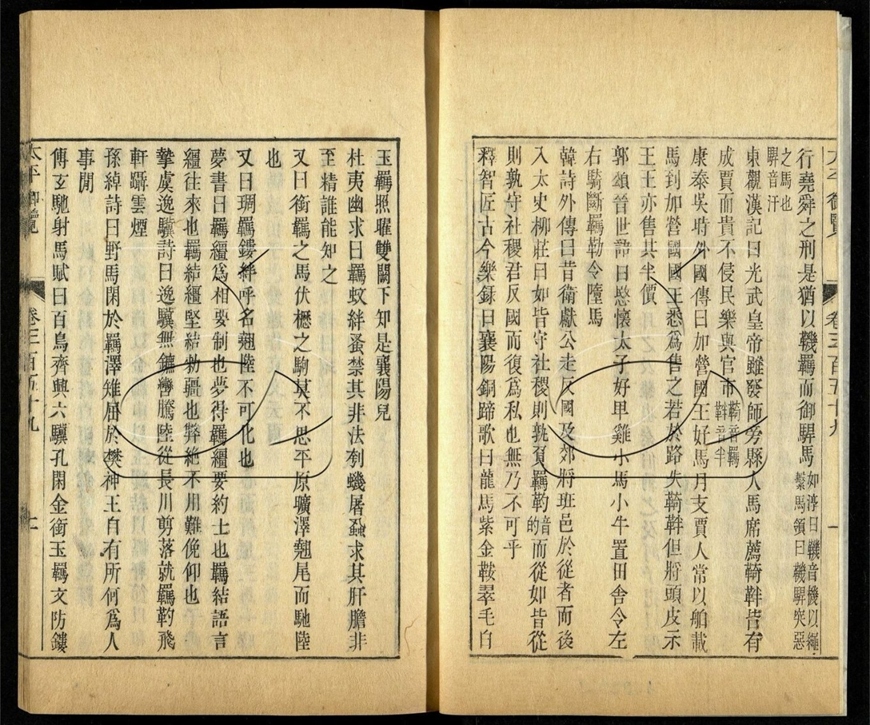 太平御覽 卷三百五十九 一
行堯舜之刑是猶以鞿羈而御駻馬如淳曰鞿音機以繩繫馬領曰鞿駻突惡
之馬也駻音汗
東觀漢記曰光武皇帝雖發師旁縣人馬席薦鞫靽皆有
成賈而貴不侵民樂與官市鞫音羈靽音半
康泰吳時外國傳曰加營國王好馬月支賈人常以舶載
馬到加營國國王悉為售之若於路失鞫靽但將頭皮示
王王亦售其半價
郭頒晉世語曰愍懷太子好甲雞小馬小牛置田舍令左
右騎斷羈勒令墮馬
韓詩外傳曰昔衛獻公走反國及郊將班邑於從者而後
入太史柳莊曰如皆守社稷則孰負羈靮音的而從如皆從
則孰守社稷君反國而復為私也無乃不可乎
釋智匠古今樂錄曰襄陽銅蹄歌曰龍馬紫金鞍翠毛白
玉羈照曜雙闕下知是襄陽兒
杜夷幽求曰羈蚊絆蚤禁其非法刳蟣屠蝨求其肝膽非
至精誰能知之
又曰銜羈之馬伏櫪之駒莫不思平原曠澤翹尾而馳陸
也
又曰琱羈鏤絆呼名翹陸不可化也
夢書曰羈繮為相要制也夢得羈繮要約士也羈結語言
繮往來也羈結繮堅結勑疆也弊絕不用難俛仰也
摯虞逸驥詩曰逸驥無鑣轡騰陸從長川剪落就羈靮飛
軒躡雲煙
孫綽詩曰野馬閑於羈澤雉屈於樊神王自有所何為人
事閒
傳玄馳射馬賦曰百鳥齊興六驥孔閑金銜玉羈文防鏤
太平御覽 卷三百五十九 七